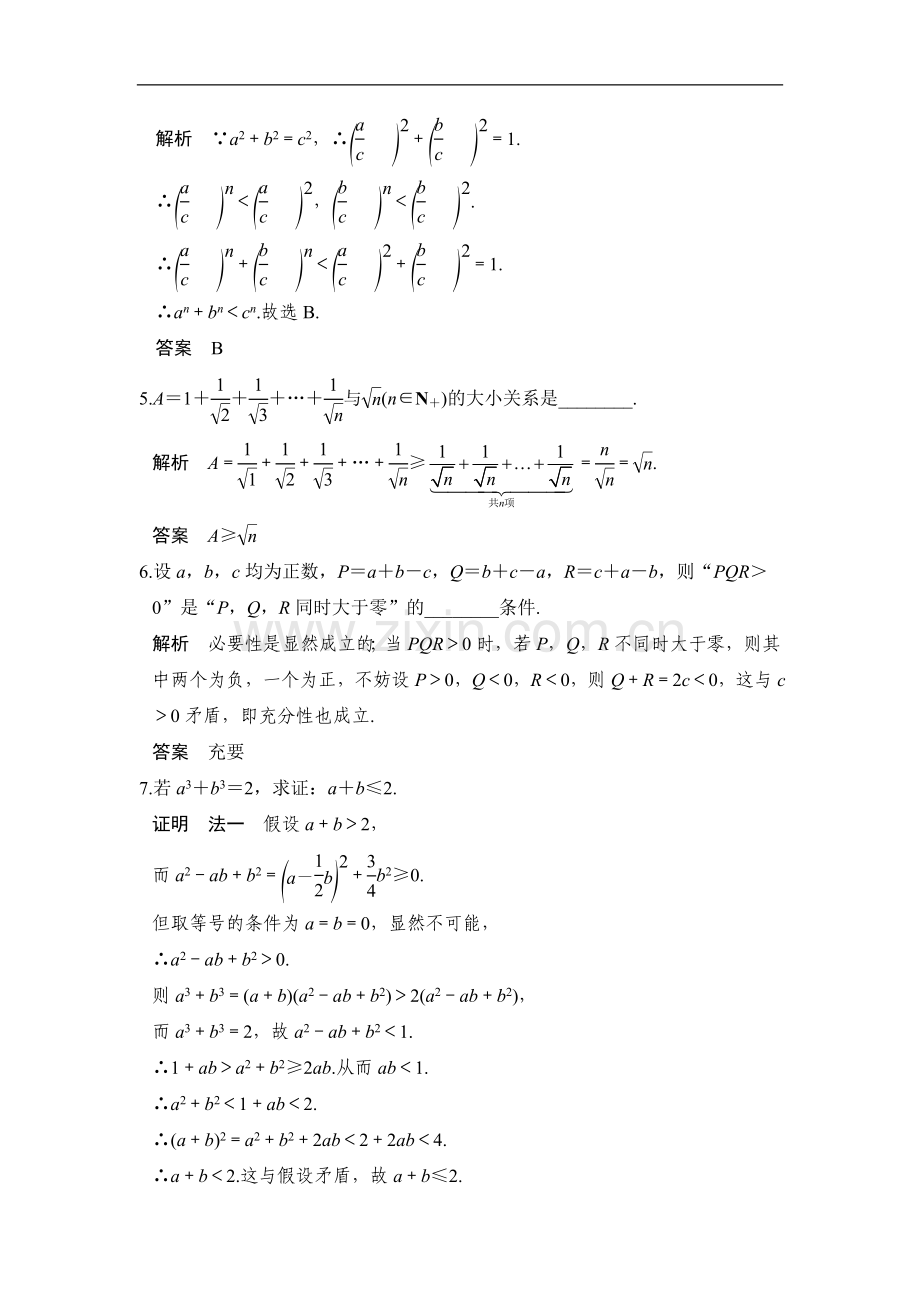 解析 ∵a²+b²=c²，∴(a/c)²+(b/c)²=1.
∴(a/c)ⁿ<(a/c)²，(b/c)ⁿ<(b/c)².
∴(a/c)ⁿ+(b/c)ⁿ<(a/c)²+(b/c)²=1.
∴aⁿ+bⁿ<cⁿ.故选 B.
答案 B
5.A=1+1/√2+1/√3+…+1/√n与√n(n∈N₊)的大小关系是________.
解析 A=1/√1+1/√2+1/√3+…+1/√n≥1/√n+1/√n+…+1/√n=n/√n=√n.
共n项
答案 A≥√n
6.设 a，b，c 均为正数，P=a+b-c，Q=b+c-a，R=c+a-b，则“PQR>
0”是“P，Q，R 同时大于零”的________条件.
www.zixin.com.cn
解析 必要性是显然成立的；当 PQR>0 时，若 P，Q，R 不同时大于零，则其
中两个为负，一个为正，不妨设 P>0，Q<0，R<0，则 Q+R=2c<0，这与 c
>0 矛盾，即充分性也成立.
答案 充要
7.若 a³+b³=2，求证：a+b≤2.
证明 法一 假设 a+b>2，
而 a²-ab+b²=(a-1/2b)²+3/4b²≥0.
但取等号的条件为 a=b=0，显然不可能，
∴a²-ab+b²>0.
则 a³+b³=(a+b)(a²-ab+b²)>2(a²-ab+b²)，
而 a³+b³=2，故 a²-ab+b²<1.
∴1+ab>a²+b²≥2ab.从而 ab<1.
∴a²+b²<1+ab<2.
∴(a+b)²=a²+b²+2ab<2+2ab<4.
∴a+b<2.这与假设矛盾，故 a+b≤2.